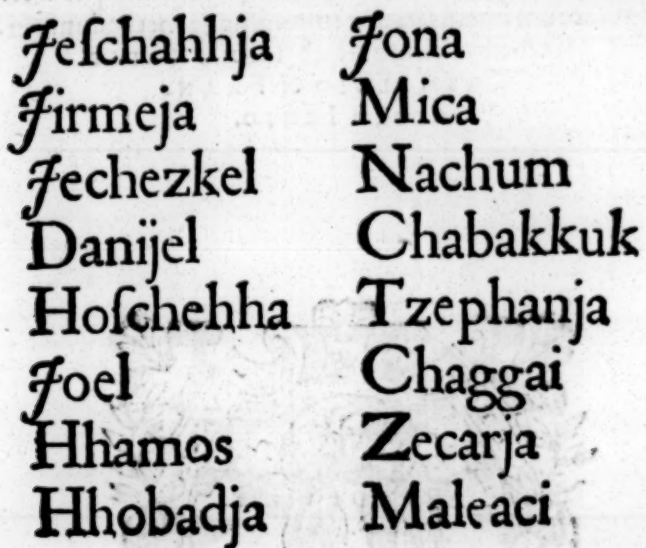 Jeſchahhja
Jirmeja
Jechezkel
Danijel
Hoſchehha
Joel
Hhamos
Hhobadja
Jona
Mica
Nachum
Chabakkuk
Tzephanja
Chaggai
Zecarja
Maleaci